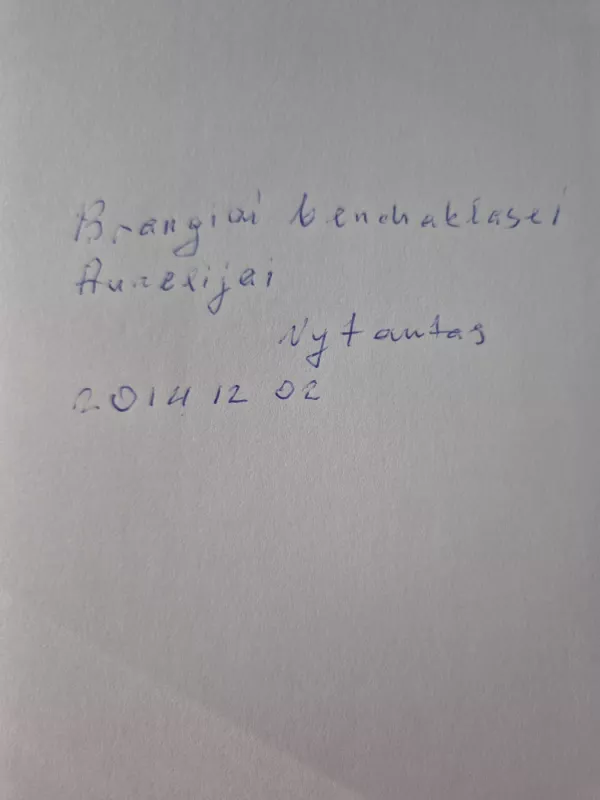 Brangiai bendraklasei
Aurelijai
Vytautas
2014 12 02